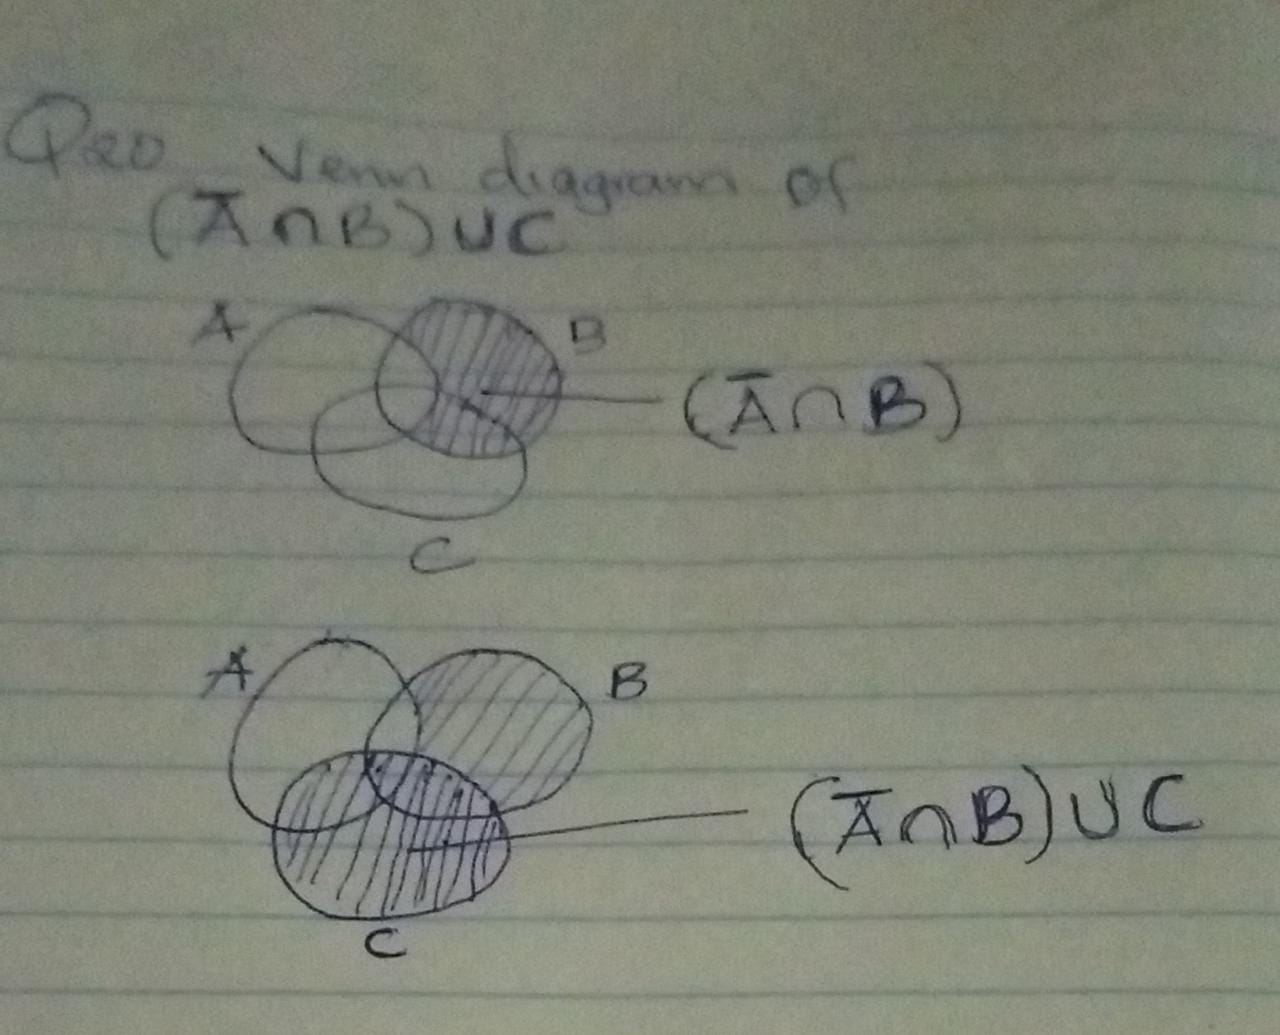 Q20 Venn diagram of
(A̅∩B)∪C
A
B
(A̅∩B)
C
A
B
(A̅∩B)∪C
C